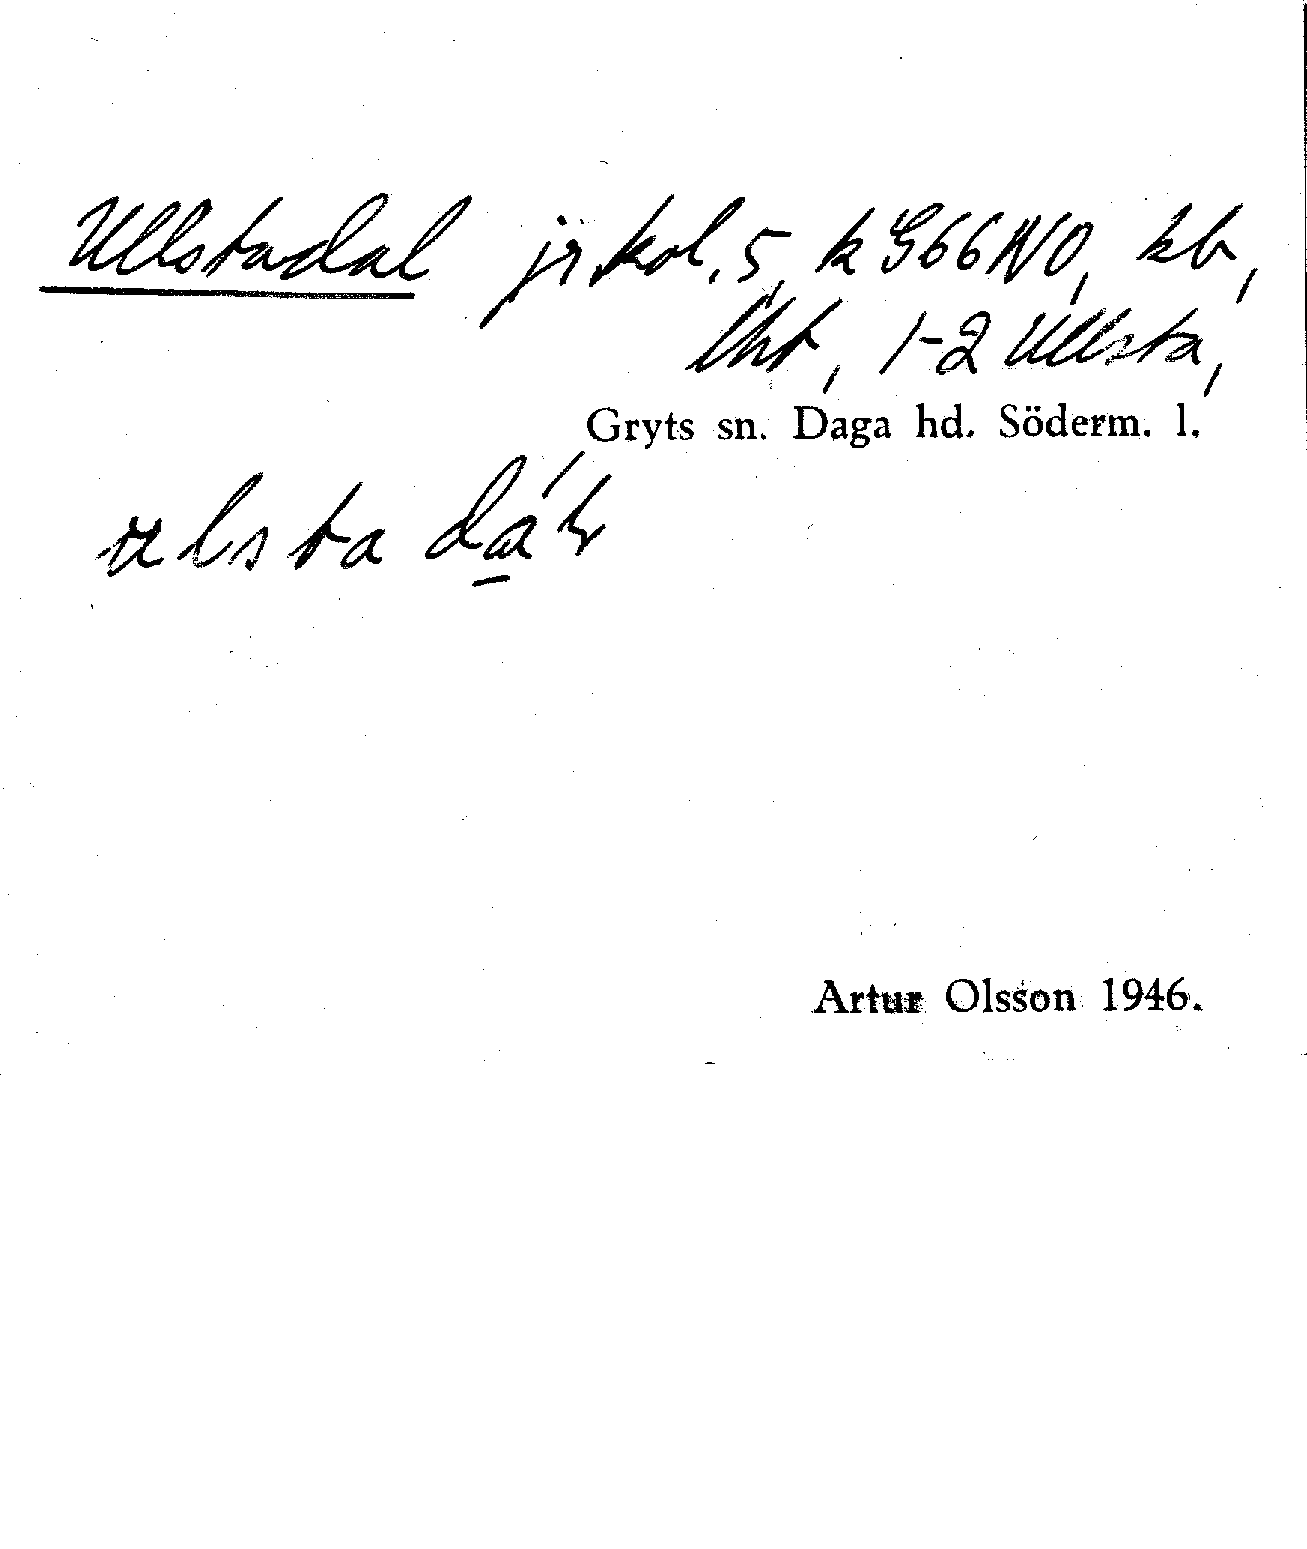 Ullstadal jr. kol. 5, k G66NO, kb,
lht, 1-2 Ullsta,
Gryts sn. Daga hd. Söderm. l.
ulsta
Artur Olsson 1946.